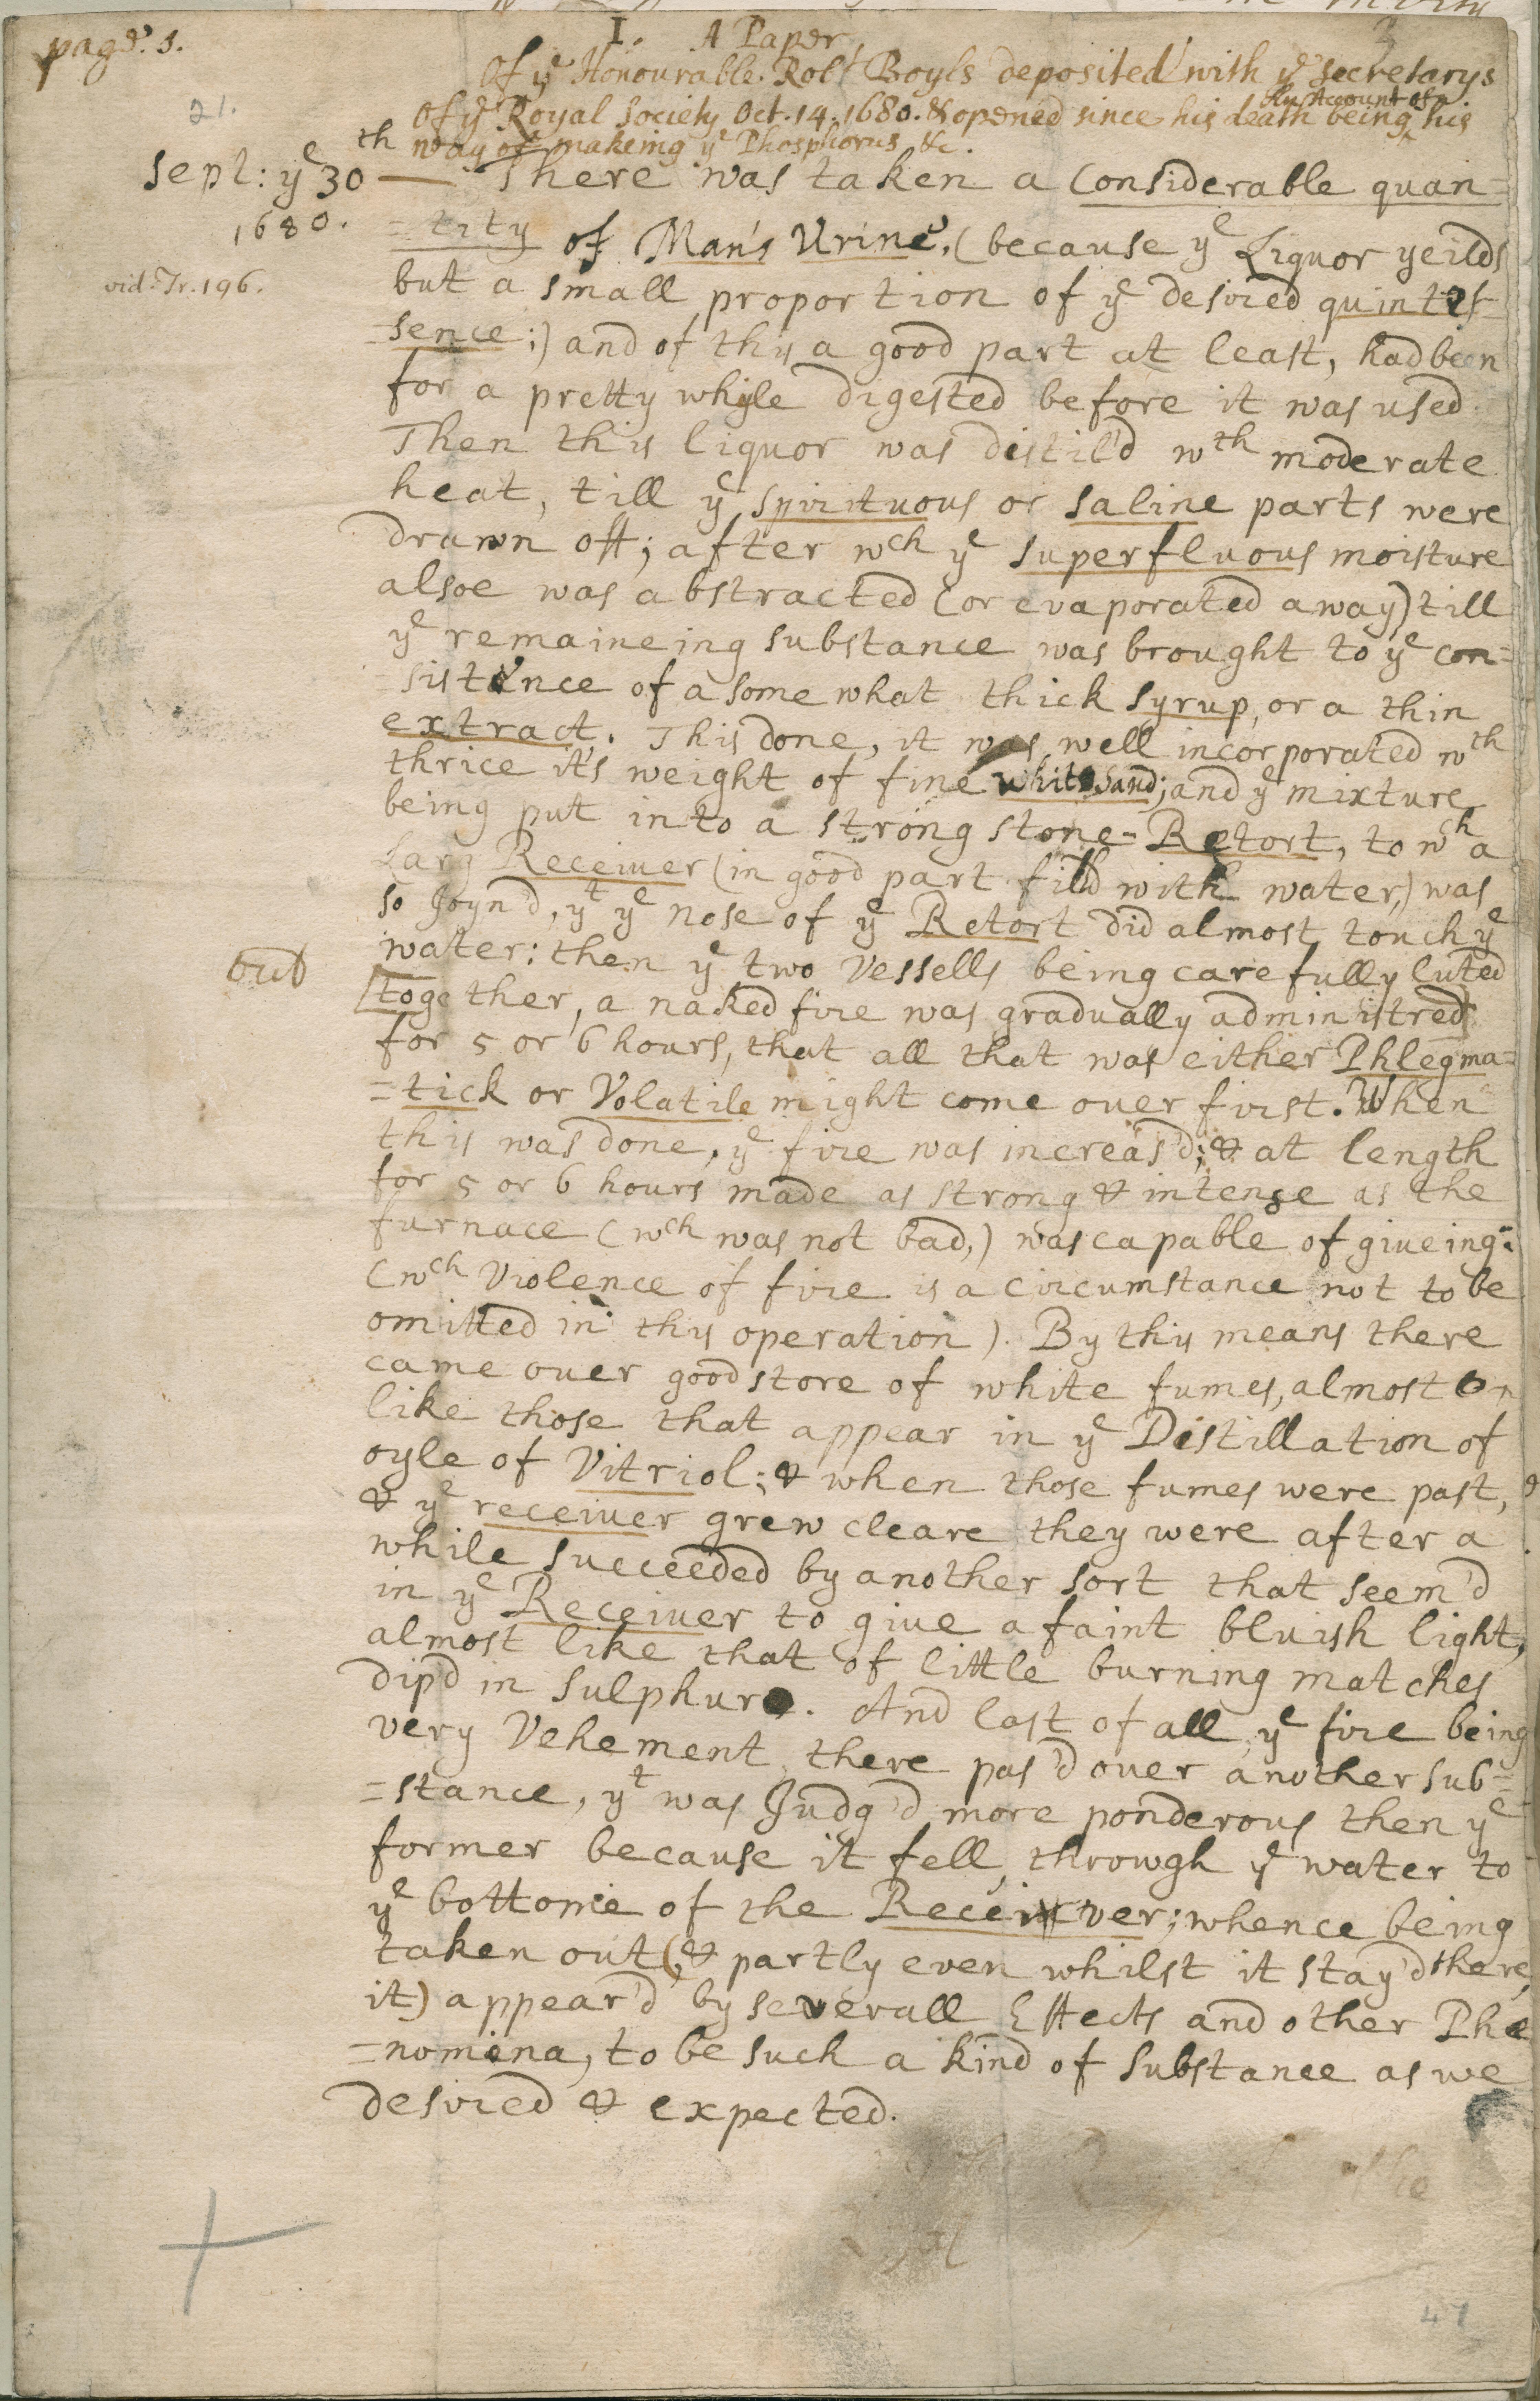 page. 3.
I. A Paper
Of yͤ Honourable. Robᵗ Boyls deposited with yͤ Secretarys
Of yͤ Royal Society Oct. 14. 1680. & opened since his death being his
An Account of
way of makeing yͤ Phosphorus &c.
21.
Sept: yͤ 30ᵗʰ — There was taken a Considerable quan=
1680.
=tity of Man's Urine, (because yͤ Liquor yeilds
vid. Tr. 196.
but a small proportion of yͤ desired quintes-
=sence;) and of this a good part at least, had been
for a pretty whyle digested before it was used.
Then this liquor was distil'd wᵗʰ moderate
heat, till yͤ spirituous or saline parts were
drawn off; after wᶜʰ yͤ superfluous moisture
alsoe was abstracted (or evaporated away) till
yͤ remaineing substance was brought to yͤ con=
=sistence of a some what thick syrup, or a thin
extract. This done, it was well incorporated wᵗʰ
thrice it's weight of fine white sand; and yͤ mixture
being put into a strong stone-Retort, to wᶜʰ a
Larg Receiuer (in good part fill'd with water,) was
so Joyn'd, yᵗ yͤ nose of yͤ Retort did almost touch yͤ
water: then yͤ two Vessells being carefully luted
out
[together, a naked fire was gradually administred
for 5 or 6 hours, that all that was either Phlegma=
=tick or Volatile might come ouer first. When
this was done, yͤ fire was increas'd; & at length
for 5 or 6 hours made as strong & intense as the
furnace (wᶜʰ was not bad,) was capable of giueing:
(wᶜʰ Violence of fire is a circumstance not to be
omitted in this operation). By this means there
came ouer good store of white fumes, almost
like those that appear in yͤ Distillation of
oyle of Vitriol; & when those fumes were past,
& yͤ receiuer grew cleare they were after a
while succeeded by another sort that seem'd
in yͤ Receiuer to giue a faint bluish light,
almost like that of little burning matches
dip'd in sulphur. And last of all, yͤ fire being
very Vehement, there pas'd ouer another sub=
=stance, yᵗ was Judg'd more ponderous then yͤ
former because it fell, through yͤ water to
yͤ bottome of the Receiver; whence being
taken out (& partly even whilst it stay'd there,
it) appear'd by severall Effects and other Phe
=nomena, to be such a kind of substance as we
desired & expected.
47